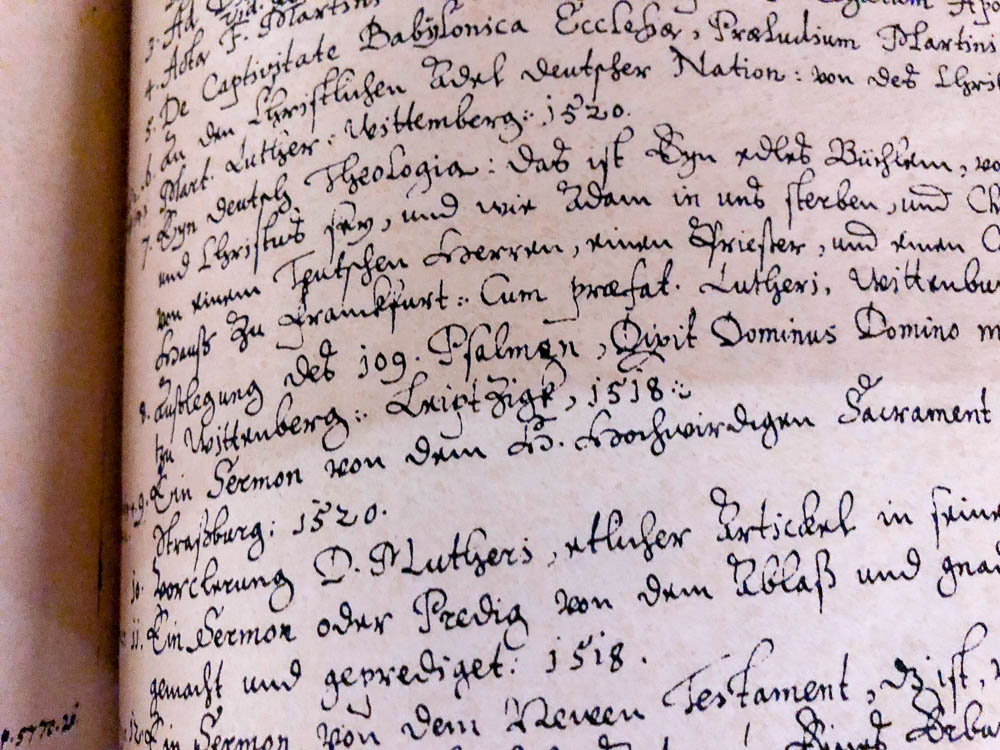 3. Ad
4. Acta F. Martini
5. De Captivitate Babylonica Ecclesiæ, Præludium Martini
6. An den Christlichen Adel deutscher Nation: von des Christ
Mart. Luther: Wittemberg: 1520.
7. Eyn deutsch Theologia: das ist Eyn edles Büchlein, vo
und Christus sey, und wie Adam in uns sterben, und Ch
von einem Teutschen Herren, einen Priester, und einen
Hauß zu Franckfurt: Cum præfat. Lutheri, Wittenbur
8. außlegung des 109. Psalmen, Dixit Dominus Domino m
tzu Wittenberg: Leiptzigk, 1518:
9. Ein Sermon von dem H. Hochwirdigen Sacrament
Straßburg: 1520.
10. vorclerung D. M Lutheri, etlicher Artickel in seine
11. Ein Sermon oder Predig von dem Ablaß und gnad
gemacht und geprediget: 1518.
12. Ein Sermon von dem Newen Testament, dz ist,